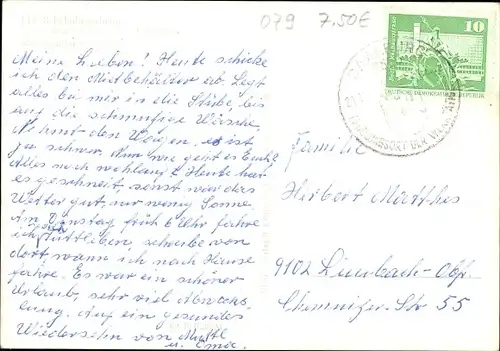 079 7.50€
10
DEUTSCHE DEMOKRATISCHE REPUBLIK
Meine Lieben! Heute schicke
ich den Mietbehälter ab. Legt
alles bei mir in die Stube, bis
auf die schmutzige Wäsche.
Nehmt den Wagen, es ist
zu schwer. Nun wie geht es Euch?
Alles noch wohlauf? Heute hat
es geschneit, sonst war das
Wetter gut, nur wenig Sonne
Am Dienstag früh 6 Uhr fahre
ich nach, schreibe von
dort wann ich nach Hause
fahre. Es war ein schöner
Urlaub, sehr viel Abwechs-
lung. Auf ein gesundes
Wiedersehn von Mutti
u. Oma.
Familie
Herbert Matthes
9102 Limbach-Ofr.
Chemnitzer-Str 55